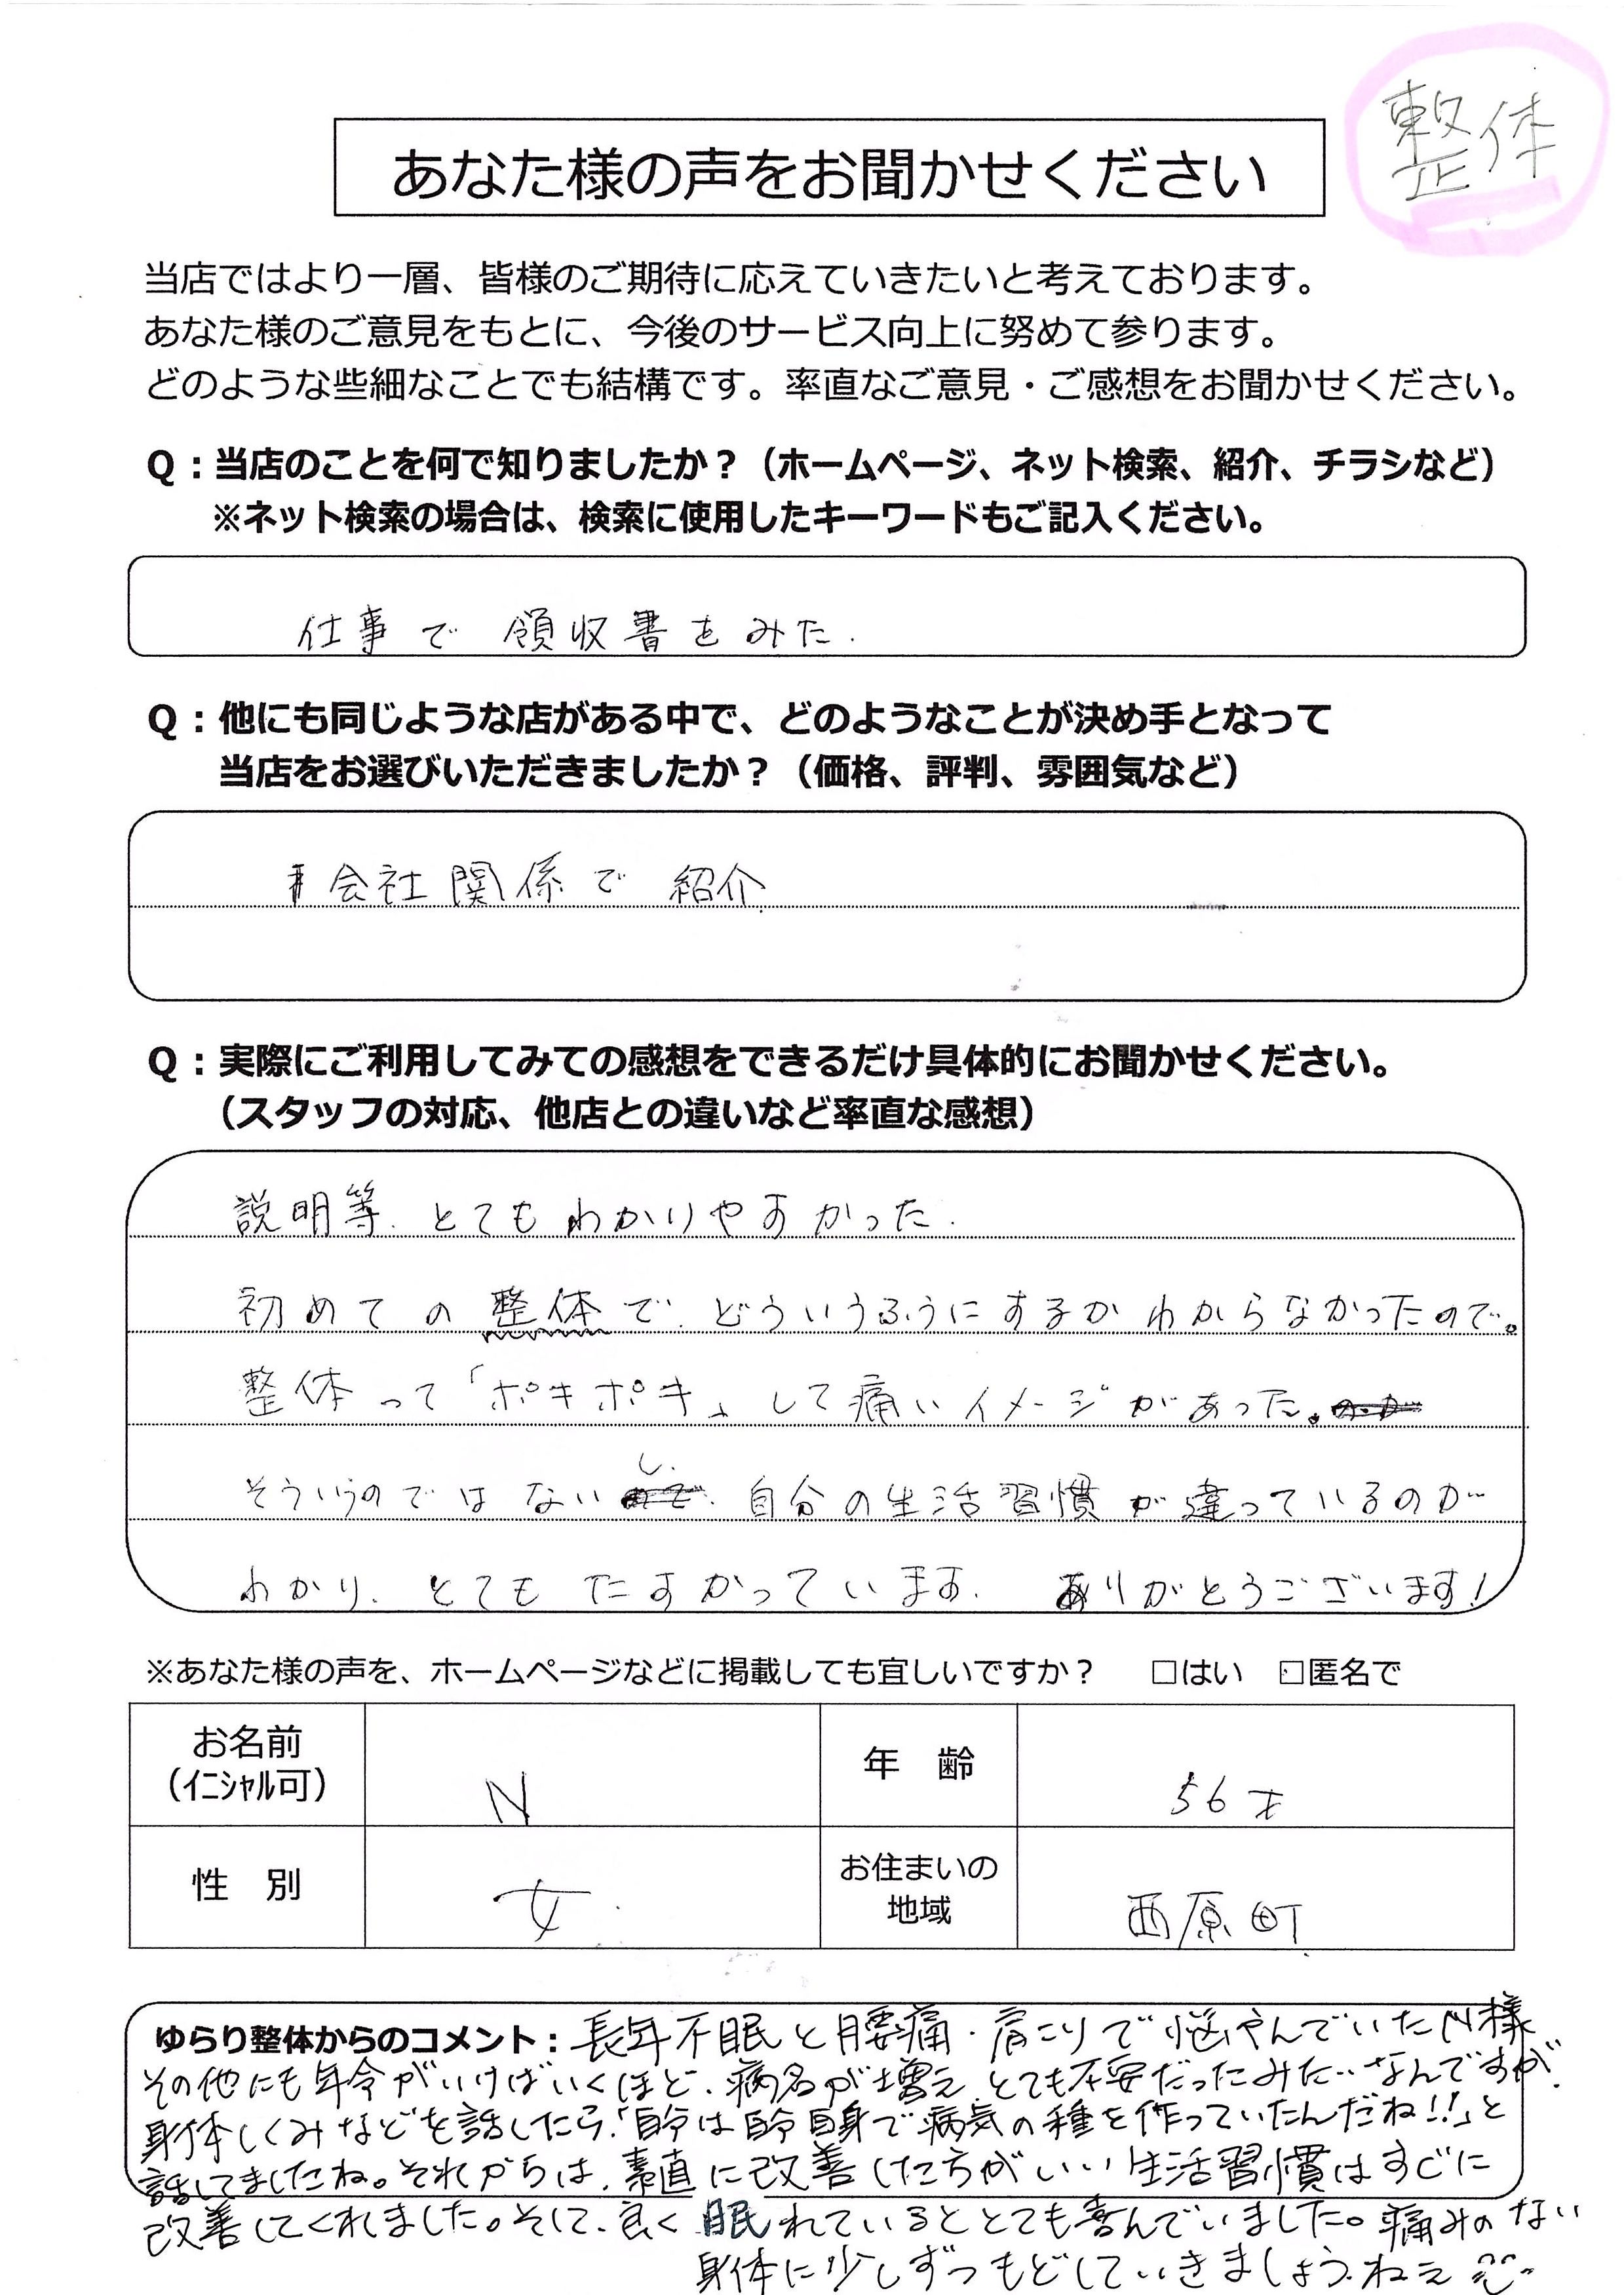 整体
あなた様の声をお聞かせください
当店ではより一層、皆様のご期待に応えていきたいと考えております。
あなた様のご意見をもとに、今後のサービス向上に努めて参ります。
どのような些細なことでも結構です。率直なご意見・ご感想をお聞かせください。
Q：当店のことを何で知りましたか？（ホームページ、ネット検索、紹介、チラシなど）
※ネット検索の場合は、検索に使用したキーワードもご記入ください。
仕事で 領収書をみた.
Q：他にも同じような店がある中で、どのようなことが決め手となって
当店をお選びいただきましたか？（価格、評判、雰囲気など）
会社関係で 紹介.
Q：実際にご利用してみての感想をできるだけ具体的にお聞かせください。
（スタッフの対応、他店との違いなど率直な感想）
説明等、とてもわかりやすかった.
初めての整体で、どういうふうにするかわからなかったので。
整体って「ポキポキ」して痛いイメージがあった。
そういうのではないし、自分の生活習慣が違っているのが
わかり、とてもたすかっています. ありがとうございます!
※あなた様の声を、ホームページなどに掲載しても宜しいですか？ □はい □匿名で
お名前
（ｲﾆｼｬﾙ可） N 年 齢 56才
性 別 女. お住まいの
地域 西原町
ゆらり整体からのコメント：長年不眠と腰痛・肩こりで悩やんでいたN様
その他にも年令がいけばいくほど、病名が増え、とても不安だったみたいなんですが、
身体しくみなどを話したら、「自分は自分自身で病気の種を作っていたんだね!!」と
話してましたね。それからは、素直に改善した方がいい生活習慣はすぐに
改善してくれました。そして、良く眠れているととても喜んでいました。痛みのない
身体に少しずつもどしていきましょうねえ